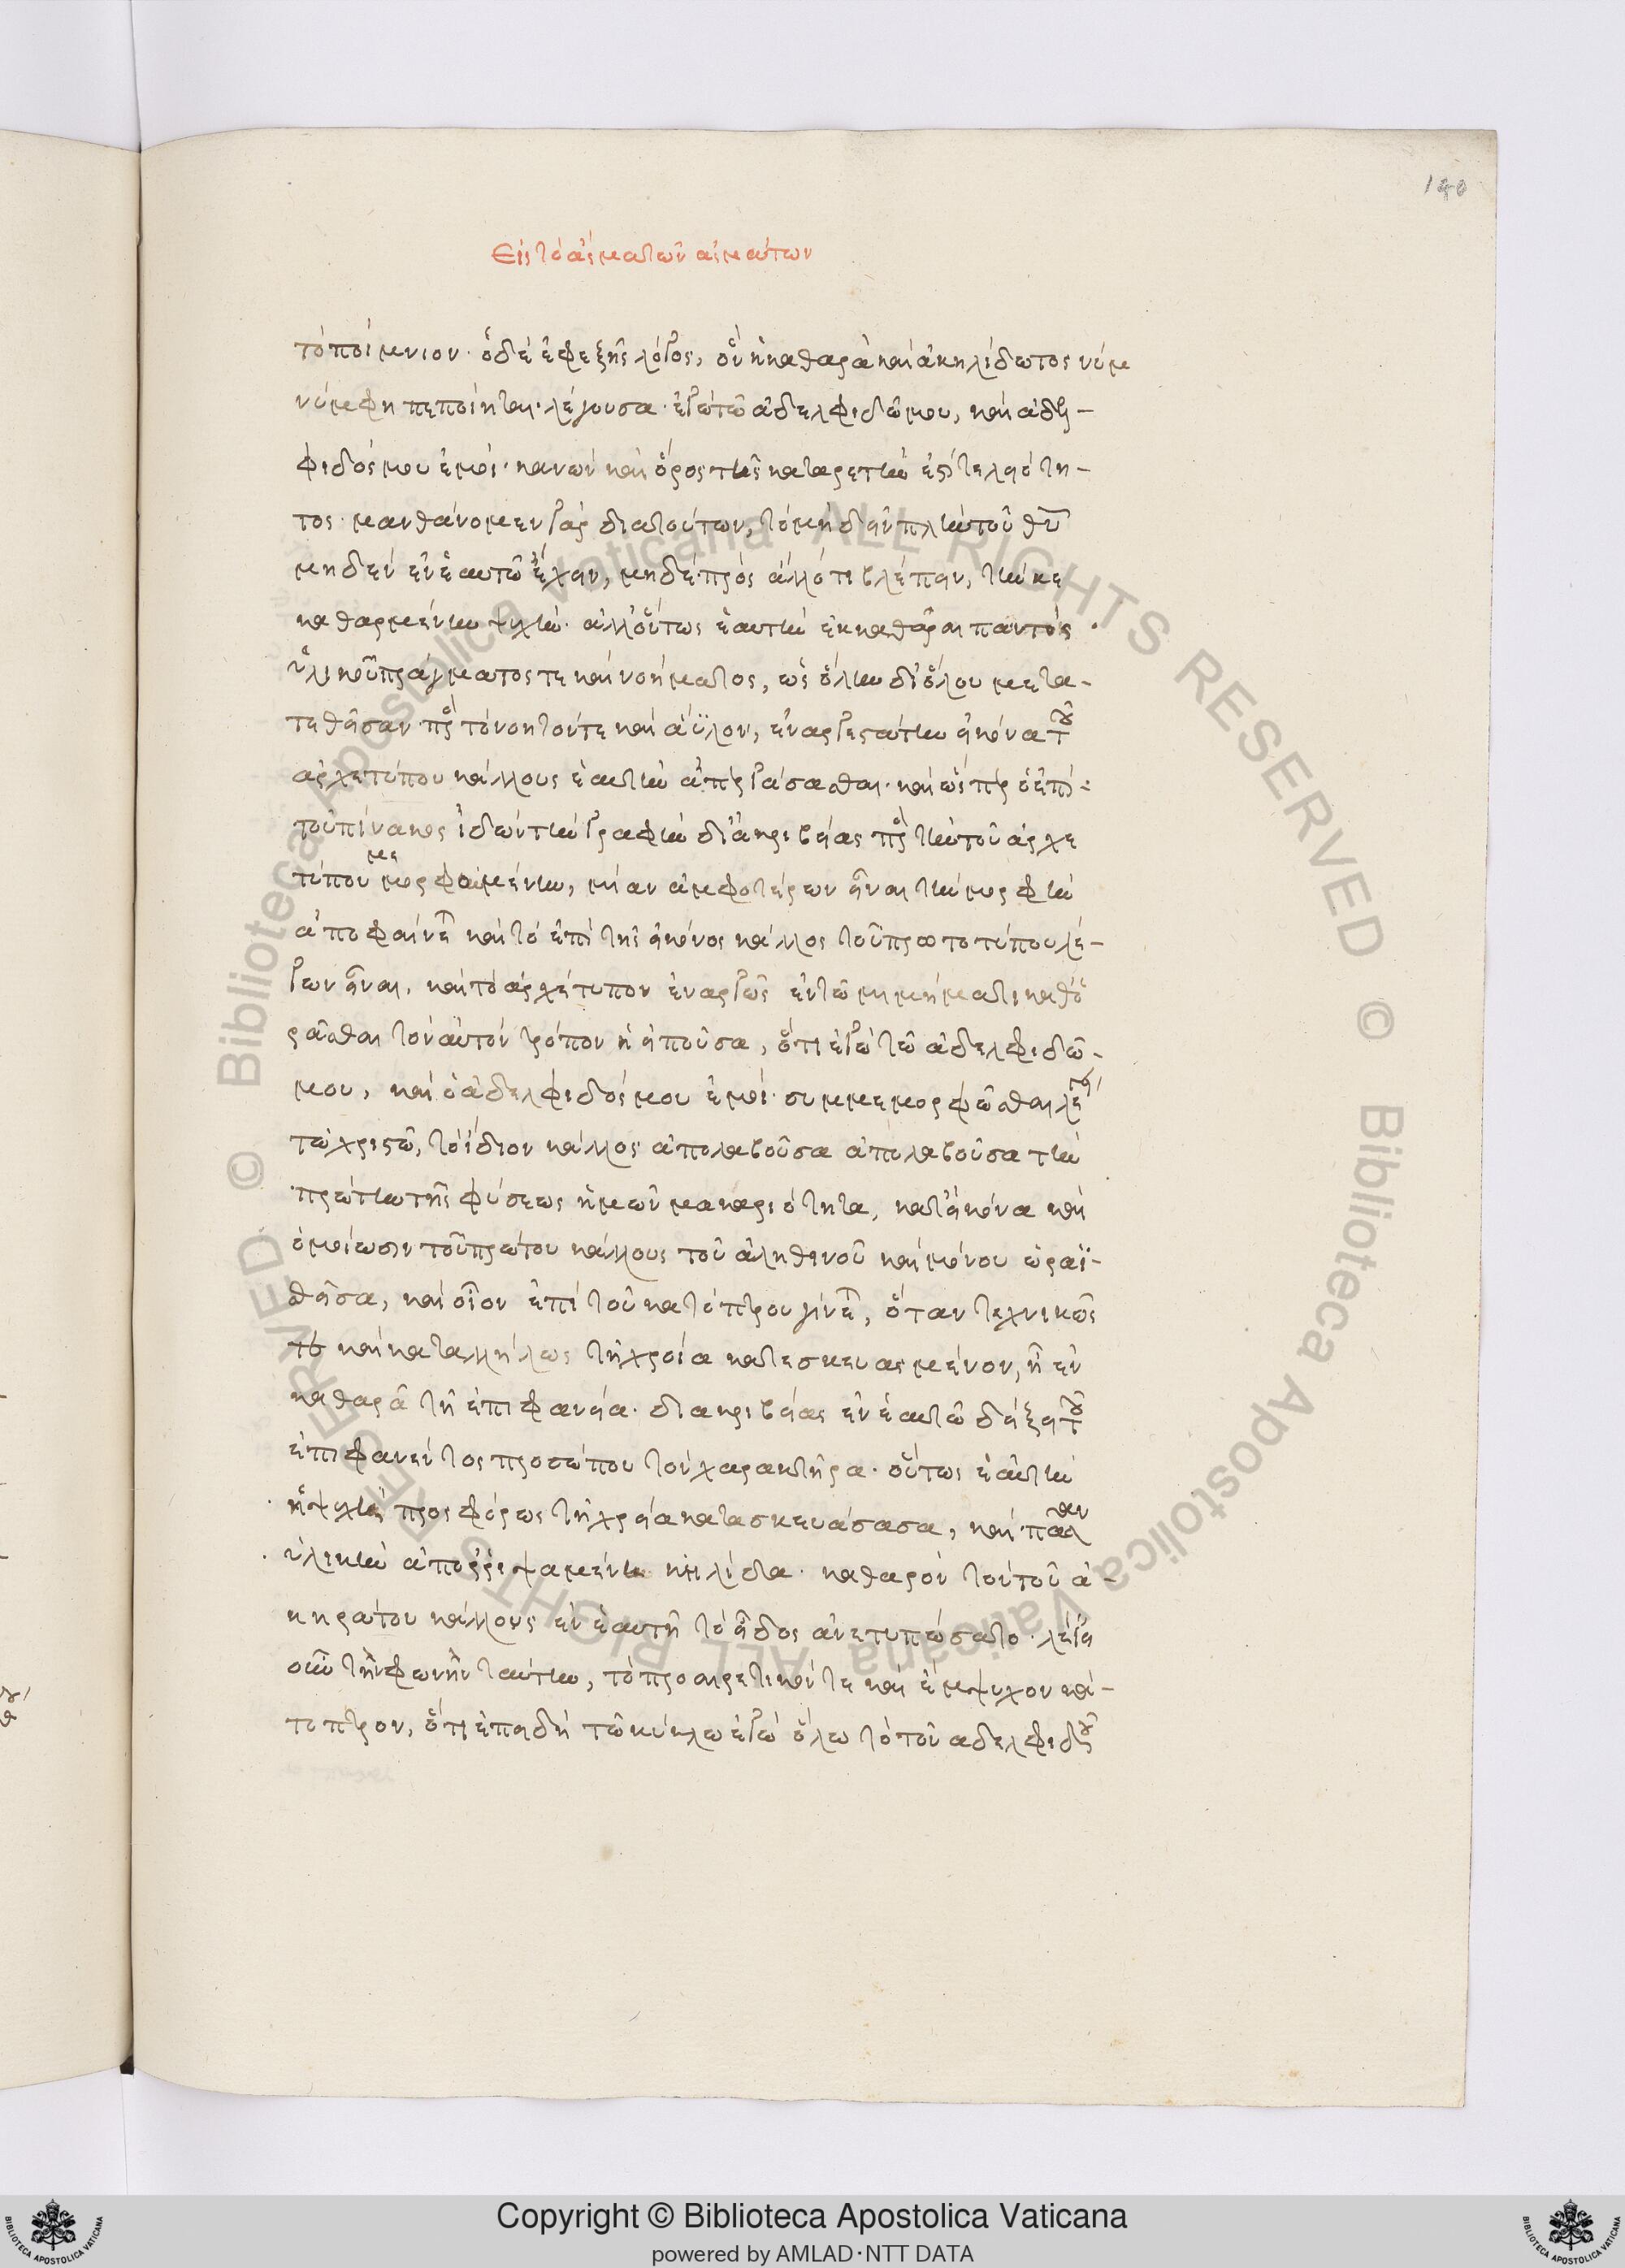 190
Εἰς τὸ ἆσμα τῶν ἀσμάτων
τὸ ποίμνιον· ὁ δὲ ἐφεξῆς λόγος, ὃν ἡ καθαρὰ καὶ ἀκηλίδωτος νύμ
νύμφη πεποίηται· λέγουσα· ἐγὼ τῶ ἀδελφιδῶ μου, καὶ ἀδελ-
φιδός μου ἐμοί· κανὼν καὶ ὅρος τῆς κατ' ἀρετὴν ἐστὶ τελειότη-
τος· μανθάνομεν γὰρ διὰ τούτων, τὸ μὴ δεῖν πλὴν τοῦ θυ
μηδὲν ἐν ἑαυτῶ ἔχειν, μηδὲ πρὸς ἄλλό τι βλέπειν, τὴν κε
καθαρμένην ψυχήν· ἀλλ' οὕτως ἑαυτὴν ἐκκαθᾶραι παντὸς
ὑλικοῦ πράγματος τε καὶ νοήματος, ὡς ὅλην δι' ὅλου μετα-
τεθεῖσαν πρὸς τὸ νοητόν τε καὶ ἄϋλον, ἐναργεστάτην εἰκόνα τοῦ
ἀρχετύπου κάλλους ἑαυτὴν ἀπεργάσασθαι· καὶ ὥσπερ ὁ ἐπὶ
τοῦ πίνακος ἰδὼν τὴν γραφὴν δι' ἀκριβείας πρὸς τὴν τοῦ ἀρχε
τύπου μεμορφωμένην, μίαν ἀμφοτέρων εἶναι τὴν μορφὴν
ἀποφαίνετ καὶ τὸ ἐπὶ τῆς εἰκόνος κάλλος τοῦ πρωτοτύπου λέ-
γων εἶναι, καὶ τὸ ἀρχέτυπον ἐναργῶς ἐν τῶ μιμήματι καθο
ρᾶσθαι τὸν αὐτὸν τρόπον ἡ εἰποῦσα, ὅτι ἐγὼ τῶ ἀδελφιδῶ
μου, καὶ ὁ ἀδελφιδός μου ἐμοί· συμμεμορφῶσθαι λέγει
τῶ χριστῶ, τὸ ἴδιον κάλλος ἀπολαβοῦσα ἀπολαβοῦσα τὴν
πρώτην τῆς φύσεως ἡμῶν μακαριότητα, κατ' εἰκόνα καὶ
ὁμοίωσιν τοῦ πρώτου κάλλους τοῦ ἀληθινοῦ καὶ μόνου ὡραϊ-
σθεῖσα, καὶ οἷον ἐπὶ τοῦ κατόπτρου γίνετ, ὅταν τεχνικῶς
τε καὶ καταλλήλως τῆ χρεία κατεσκευασμένον, ἦ ἐν
καθαρᾶ τῆ ἐπιφανεία· δι' ἀκριβείας ἐν ἑαυτῶ δείξει τοῦ
ἐπιφανέντος προσώπου τὸν χαρακτῆρα· οὕτως ἑαυτὴν
ἡ ψυχὴ προσφόρως τῆ χρεία κατασκευάσασα, καὶ πᾶσαν
ὑλικὴν ἀπορριψαμένη κηλίδα· καθαρὸν τὸν τοῦ ἀ-
κηράτου κάλλους ἐν ἑαυτῆ τὸ εἶδος ἀνετυπώσατο· λέγει
οὖν τὴν φωνὴν ταύτην, τὸ προαιρετικόν τε καὶ ἔμψυχον κά-
τοπτρον, ὅτι ἐπειδὴ τῶ κύκλω ἐγὼ ὅλω τὸ τοῦ ἀδελφιδοῦ
Copyright © Biblioteca Apostolica Vaticana
powered by AMLAD·NTT DATA